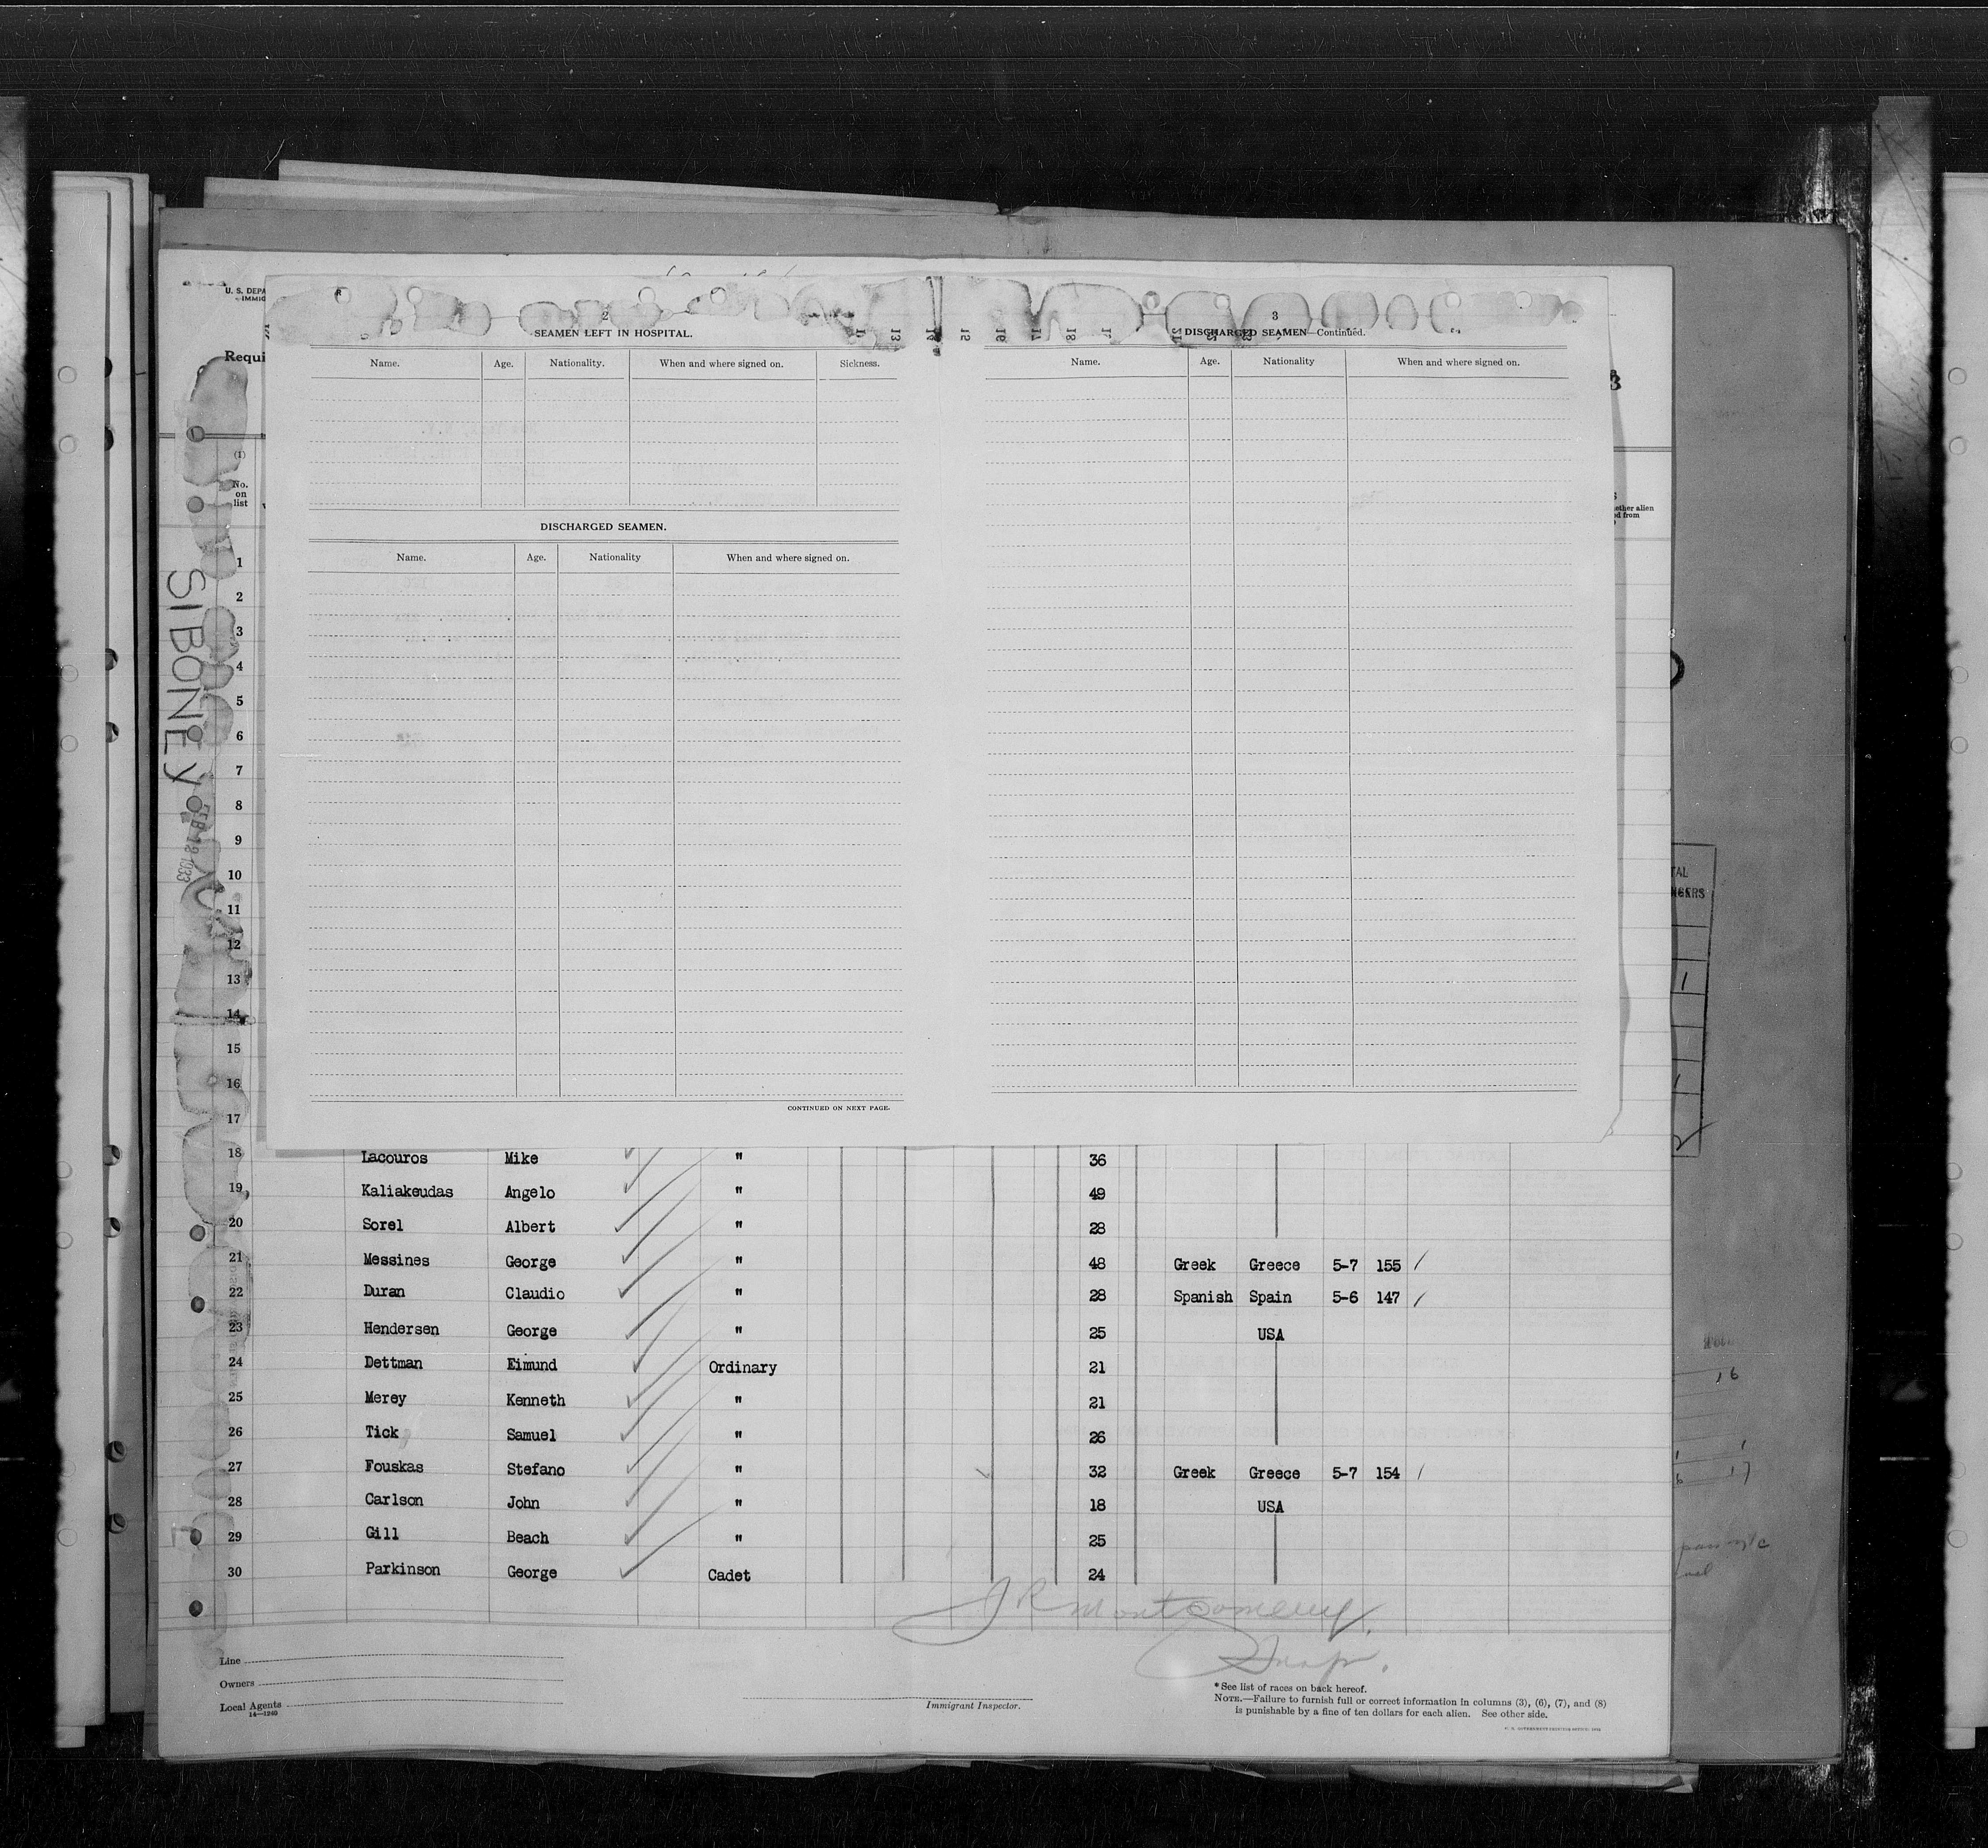 U. S. DEPA
IMMIG
Requi
2
SEAMEN LEFT IN HOSPITAL.
Name. Age. Nationality. When and where signed on. Sickness.
DISCHARGED SEAMEN.
Name. Age. Nationality When and where signed on.
CONTINUED ON NEXT PAGE.
3
DISCHARGED SEAMEN—Continued.
Name. Age. Nationality When and where signed on.
(1)
No.
on
list
ether alien
ed from
SIBONEY
FEB 12 1933
1
2
3
4
5
6
7
8
9
10
11
12
13
14
15
16
17
18 Lacouros Mike " 36
19 Kaliakeudas Angelo " 49
20 Sorel Albert " 28
21 Messines George " 48 Greek Greece 5-7 155
22 Duran Claudio " 28 Spanish Spain 5-6 147
23 Hendersen George " 25 USA
24 Dettman Eimund Ordinary 21
25 Merey Kenneth " 21
26 Tick Samuel " 26
27 Fouskas Stefano " 32 Greek Greece 5-7 154
28 Carlson John " 18 USA
29 Gill Beach " 25
30 Parkinson George Cadet 24
J R Montgomery.
Insp.
Line
Owners
Local Agents
14—1240
Immigrant Inspector.
*See list of races on back hereof.
NOTE.—Failure to furnish full or correct information in columns (3), (6), (7), and (8)
is punishable by a fine of ten dollars for each alien. See other side.
TAL
NGERS